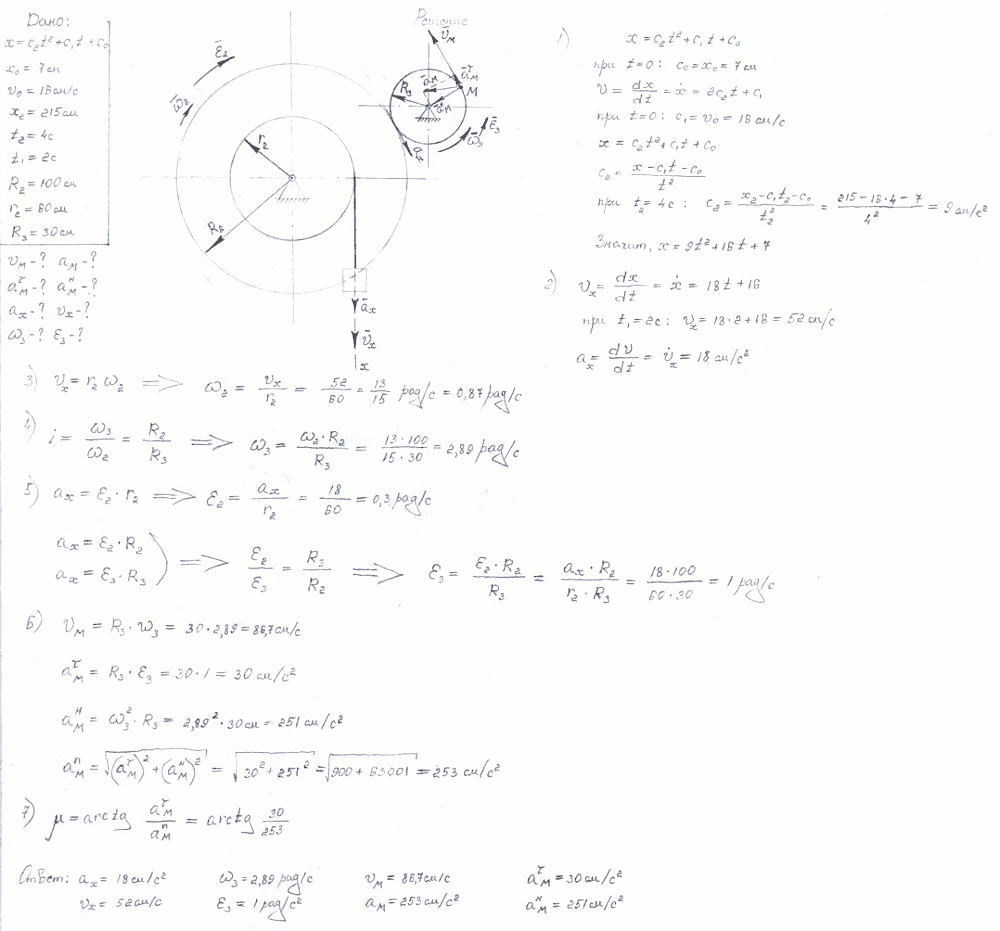 Дано:
x = c₂t² + c₁t + c₀
x₀ = 7 см
v₀ = 16 см/с
x₂ = 215 см
t₂ = 4 с
t₁ = 2 с
R₂ = 100 см
r₂ = 60 см
R₃ = 30 см
v_M - ? a_M - ?
a_M^τ - ? a_M^н - ?
a_x - ? v_x - ?
ω₃ - ? ε₃ - ?
Решение
v̄_M
ε̄₂
ω̄₂
r₂
R₂
R₃
ā_M
ā_M^τ
M
ε̄₃
ω̄₃
ā_x
v̄_x
x
1) x = c₂t² + c₁t + c₀
при t = 0: c₀ = x₀ = 7 см
v = dx/dt = ẋ = 2c₂t + c₁
при t = 0: c₁ = v₀ = 16 см/с
x = c₂t² + c₁t + c₀
c₂ = (x - c₁t - c₀)/t²
при t₂ = 4 с: c₂ = (x₂ - c₁t₂ - c₀)/t₂² = (215 - 16·4 - 7)/4² = 9 см/с²
Значит, x = 9t² + 16t + 7
2) v_x = dx/dt = ẋ = 18t + 16
при t₁ = 2 с: v_x = 18·2 + 16 = 52 см/с
a_x = dv/dt = v̇_x = 18 см/с²
3) v_x = r₂ω₂ => ω₂ = v_x/r₂ = 52/60 = 13/15 рад/с = 0,87 рад/с
4) i = ω₃/ω₂ = R₂/R₃ => ω₃ = ω₂·R₂/R₃ = 13·100/15·30 = 2,89 рад/с
5) a_x = ε₂·r₂ => ε₂ = a_x/r₂ = 18/60 = 0,3 рад/с
a_x = ε₂·R₂
a_x = ε₃·R₃ ) => ε₂/ε₃ = R₃/R₂ => ε₃ = ε₂·R₂/R₃ = a_x·R₂/r₂·R₃ = 18·100/60·30 = 1 рад/с
6) v_M = R₃·ω₃ = 30·2,89 = 86,7 см/с
a_M^τ = R₃·ε₃ = 30·1 = 30 см/с²
a_M^н = ω₃²·R₃ = 2,89²·30 см = 251 см/с²
a_M^п = √((a_M^τ)² + (a_M^н)²) = √(30² + 251²) = √(900 + 63001) = 253 см/с²
7) μ = arctg a_M^τ/a_M^п = arctg 30/253
Ответ: a_x = 18 см/с² ω₃ = 2,89 рад/с v_M = 86,7 см/с a_M^τ = 30 см/с²
v_x = 52 см/с ε₃ = 1 рад/с² a_M = 253 см/с² a_M^н = 251 см/с²